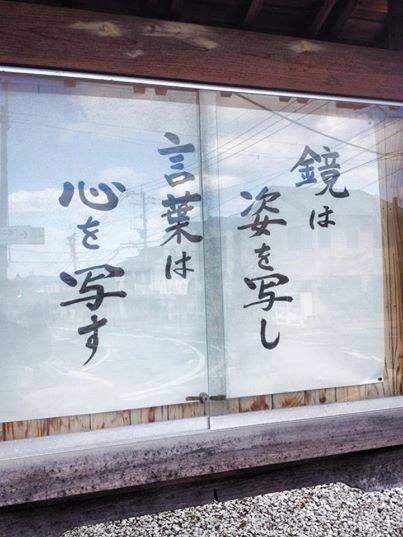 鏡は
姿を写し
言葉は
心を写す